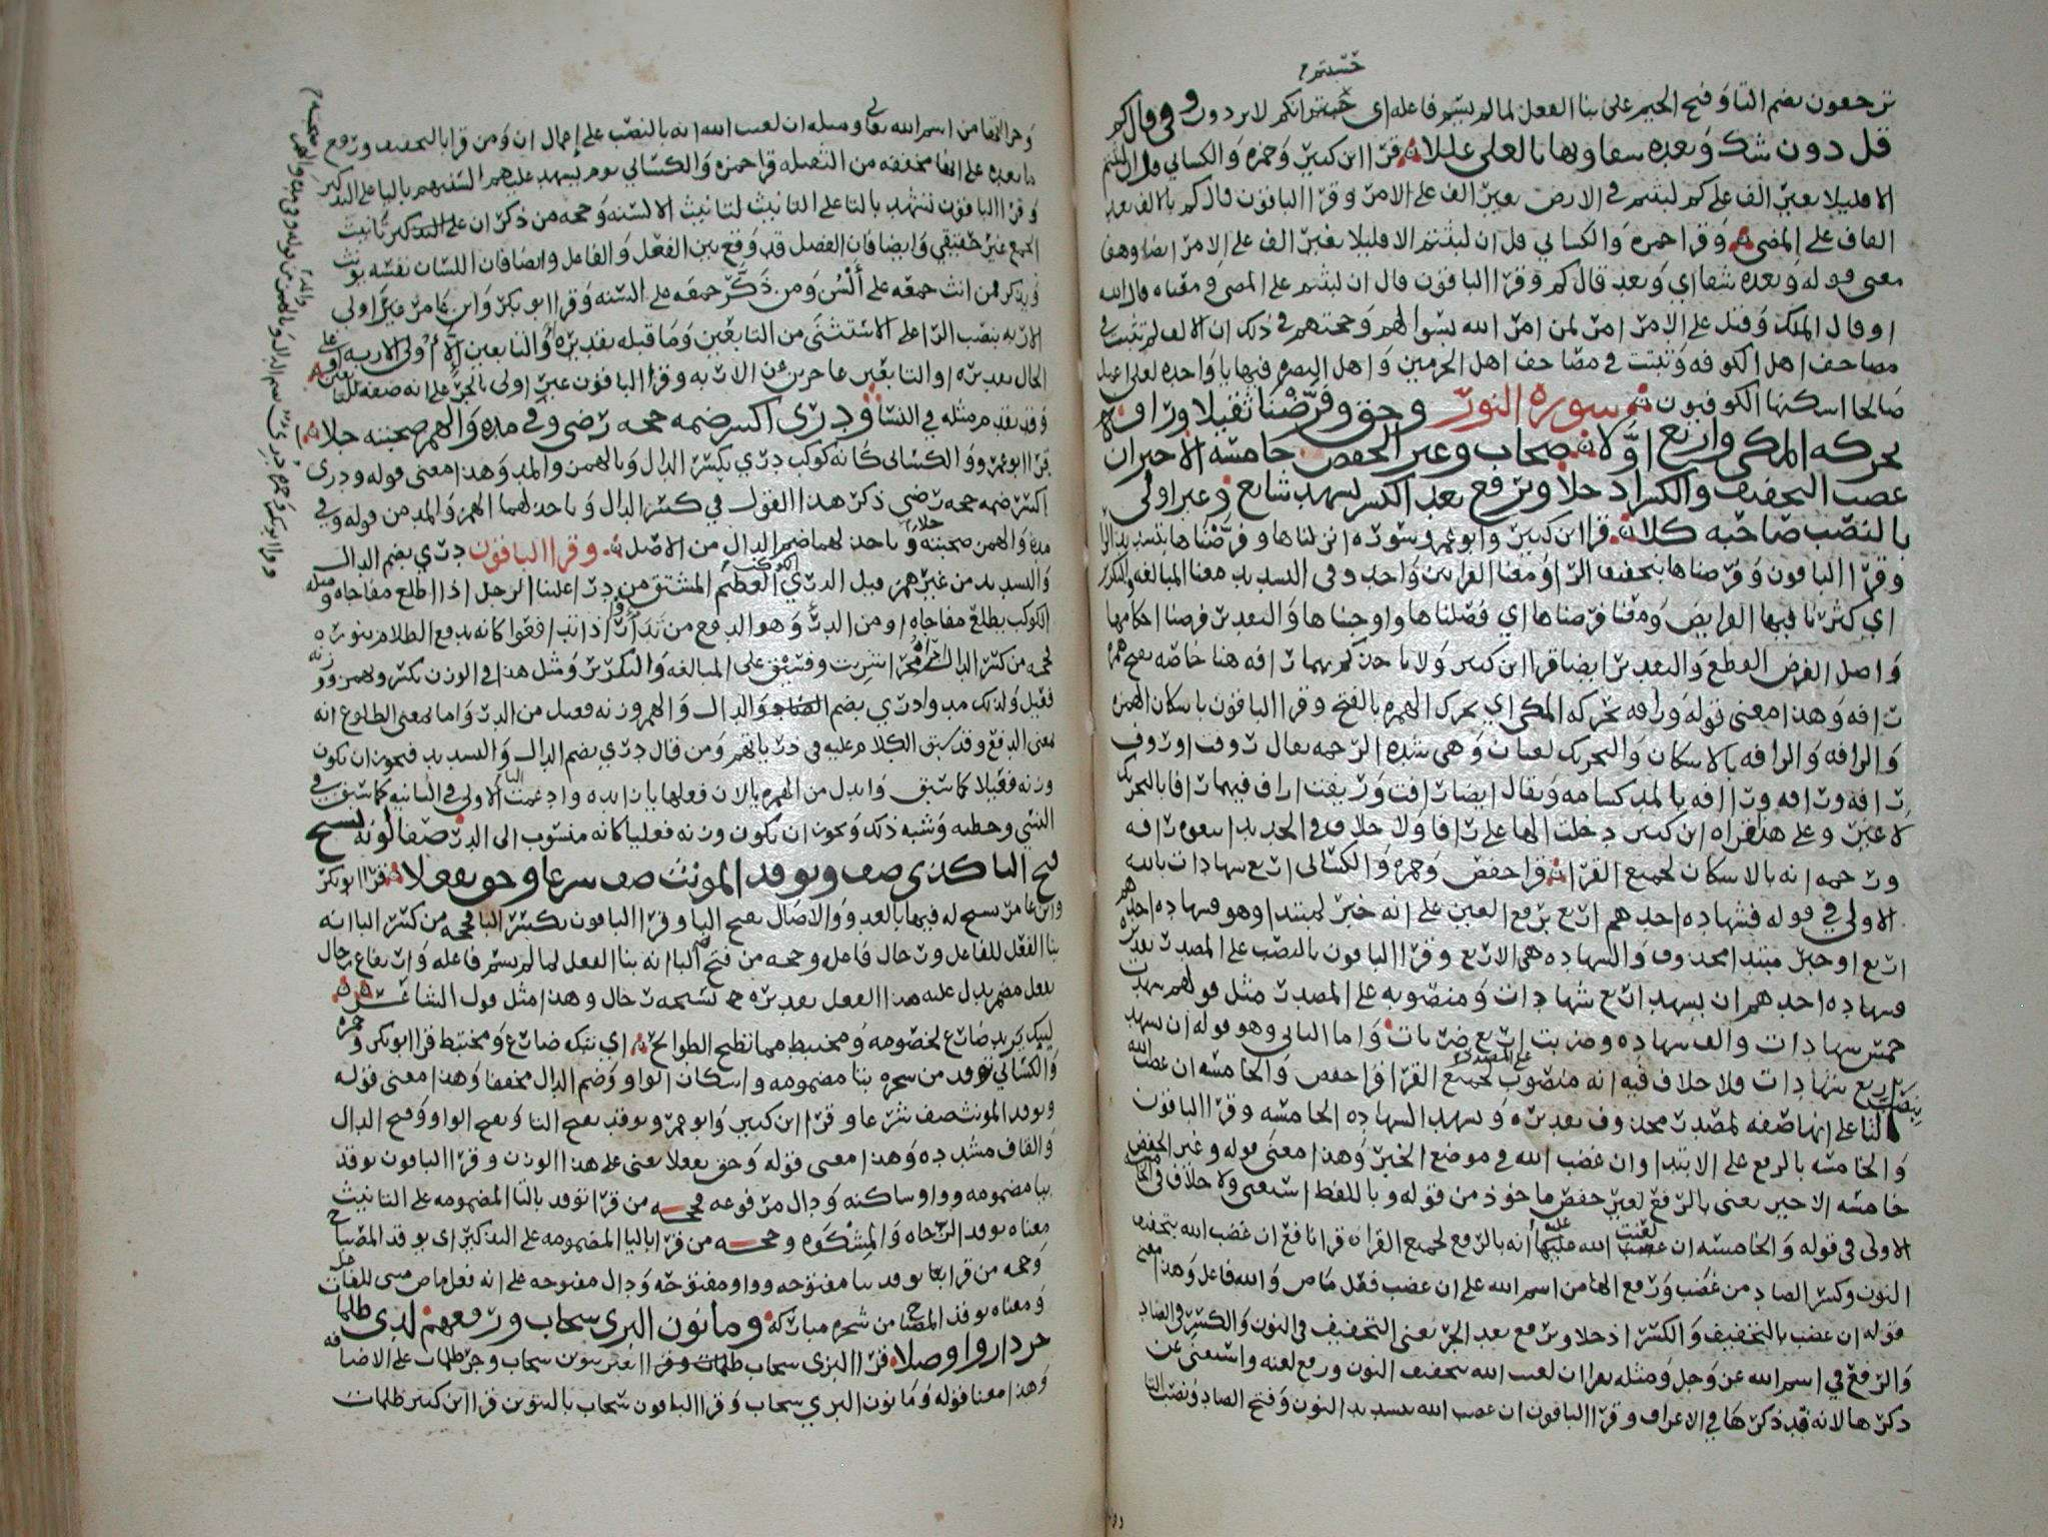 ترجعون بضم التا وفتح الجيم على بنا الفعل لما لم يسم فاعله اي حسبتم انكم لا تردون وفي قال كم
قل دون شك وبعده شفا وبها يا لعلي عللا قرا ابن كثير وحمزه والكسائي قل ان لبثتم
الا قليلا بغير الف على كم لبثتم في الارض بغير الف على الامر وقرا الباقون قال كم بالالف بعد
القاف على المضي وقرا حمزه والكسائي قل ان لبثتم الا قليلا بغير الف على الامر ايضا وهذا
معنى قوله وبعده شفا اي وبعد قال كم وقرا الباقون قال ان لبثتم على المضي ومعناه قال الله
او قال الملك وقل على الامر امر لمن امر الله بسوالهم وحجتهم في ذلك ان الالف لم تثبت في
مصاحف اهل الكوفه وثبتت في مصاحف اهل الحرمين واهل البصره فيها يا واحده لعلي اعمل
صالحا اسكنها الكوفيون سوره النور وحق وفرضنا ثقيلا ورافه
يحركه المكي واربع اولا صحاب وغير الحفص خامسه الاخير ان
غضب التخفيف والكسر ادخلا ويرفع بعد الكسر يشهد شايع وغير اولي
بالنصب صاحبه كلا قرا ابن كثير وابو عمرو سوره انزلناها وفرضناها بتشديد الرا
وقرا الباقون وفرضناها بتخفيف الرا ومعنا القراتين واحد وفي التشديد معنا المبالغه والتكثير
اي كثرنا فيها الفرايض ومعنا فرضناها اي فصلناها واوجبناها والتقدير فرضنا احكامها
واصل الفرض القطع والتقدير ايضا قرا ابن كثير ولا تاخذكم بهما رافه هنا خاصه بفتح همزه
رافه وهذا معنى قوله ورافه يحركه المكي اي يحرك الهمزه بالفتح وقرا الباقون باسكان الهمزه
والرافه والرافه بالاسكان والتحريك لغتان وهي شده الرحمه يقال روف وروف
رافه ورافه ورافه بالمد كسامه ويقال ايضا رافت وريفت اراف فيهما رافا بالتحريك
لا غير وعلى هذا قراه ابن كثير دخلت الها على رافا ولا خلاف في الحديد اتبعوه رافه
ورحمه انه بالاسكان لجميع القرا قرا حفص وحمزه والكسائي اربع شهادات بالله
الاولى في قوله فشهاده احدهم اربع برفع العين على انه خبر لمبتدا وهو فشهاده احدهم
اربع او خبر مبتدا محذوف والشهاده هي الاربع وقرا الباقون بالنصب على المصدر تقديره
فشهاده احدهم ان يشهد اربع شهادات ومنصوبه على المصدر مثل قولهم شهدت
خمس شهادات والف شهاده وضربت اربع ضربات واما الثاني وهو قوله ان تشهد
اربع شهادات فلا خلاف فيه انه منصوب على المصدر لجميع القرا قرا حفص والخامسه ان غضب الله
بنصب التا على انها صفه لمصدر محذوف تقديره وتشهد الشهاده الخامسه وقرا الباقون
والخامسه بالرفع على الابتدا وان غضب الله في موضع الخبر وهذا معنى قوله وغير الحفص
خامسه الاخير يعني بالرفع لغير حفص ماخوذ من قوله وباللفظ استغني ولا خلاف في التا
الاولى في قوله والخامسه ان لعنت الله عليه انه بالرفع لجميع القرا قرا نافع ان غضب الله بتخفيف
النون وكسر الضاد من غضب ورفع الها من اسم الله على ان غضب فعل ماض والله فاعل وهذا معنى
قوله ان غضب بالتخفيف والكسر ادخلا ويرفع بعد الجر يعني التخفيف في النون والكسر في الضاد
والرفع في اسم الله عز وجل ومثله يقرا ان لعنت الله بتخفيف النون ورفع لعنه واستغنى عن
ذكرها لانه قد ذكرها في الاعراف وقرا الباقون ان غضب الله بتشديد النون وفتح الضاد ونصب البا
وجر الها من اسم الله تعالى ومثله ان لعنت الله انه بالنصب على اعمال ان ومن قرا بالتخفيف ورفع
ما بعده على انها مخففه من الثقيله قرا حمزه والكسائي يوم يشهد عليهم السنتهم باليا على التذكير
وقرا الباقون تشهد بالتا على التانيث لتانيث الالسنه وحجه من ذكر ان على التذكير تانيث
الجمع غير حقيقي وايضا فان الفصل قد وقع بين الفعل والفاعل وايضا فان اللسان نفسه يونث
ويذكر فمن انث جمعه على السن ومن ذكر جمعه على السنه وقرا ابو بكر وابن عامر غير اولي
الاربه بنصب الرا على الاستثنى من التابعين وما قبله تقديره والتابعين الا اولي الاربه او على
الحال تقديره او التابعين عاجزين عن الاربه وقرا الباقون غير اولي بالجر على انه صفه للتابعين
وقد تقدم مثله في النسا ودري اكسر ضمه حجه رضى وفي مده والهمز صحبته حلا
قرا ابو عمرو والكسائي كانه كوكب دري بكسر الدال وبالهمز والمد وهذا معنى قوله ودري
اكسر ضمه حجه رضي ذكر هذا القول في كسر الدال وياخذ لهما الهمز والمد من قوله وفي
مده والهمز صحبته حلا وياخذ لهما ضم الدال من الاصل وقرا الباقون دري بضم الدال
والتشديد من غير همز قيل الدري الكوكب العظيم المشتق من درا علينا الرجل اذا اطلع مفاجاه ومثله
الكوكب يطلع مفاجاه او من الدر وهو الدفع من تدارا اذا تدافعوا كانه يدفع الظلام بنوره
فعيل ولذلك مبدا دري بضم الدال والهمز وزنه فعيل من الدر واما لمعنى الطلوع انه
لمعنى الدفع وقد سبق الكلام عليه في در بالهمز ومن قال دري بضم الدال والتشديد فيجوز ان يكون
وزنه فعيلا كما سبق وابدل من الهمزه يا لان قبلها يا زايده وادغمت اليا الاولى في الثانيه كما سبق في
النسي وخطيه وشبه ذلك ويجوز ان يكون وزنه فعليا كانه منسوب الى الدر صفا لونه يسبح
فتح البا كذى صف ويوقد المونث صف شرعا وحق تفعلا قرا ابو بكر
وابن عامر يسبح له فيها بالغدو والاصال بفتح البا وقرا الباقون بكسر البا فحجه من كسر البا انه
بنا الفعل للفاعل ورجال فاعل وحجه من فتح البا انه بنا الفعل لما لم يسم فاعله وارتفاع رجال
بفعل مضمر يدل عليه هذا الفعل تقديره يسبحه رجال وهذا مثل قول الشاعر
ليبك يزيد ضارع لخصومه ومختبط مما تطيح الطوايح اي يبكه ضارع ومختبط قرا ابو بكر وحمزه
والكسائي توقد من شجره بتا مضمومه واسكان الواو وضم الدال مخففا وهذا معنى قوله
ويوقد المونث صف شرعا وقرا ابن كثير وابو عمرو توقد بفتح التا وبفتح الواو وفتح الدال
والقاف مشدده وهذا معنى قوله وحق تفعلا يعني على هذا الوزن وقرا الباقون يوقد
بيا مضمومه وواو ساكنه ودال مرفوعه فحجه من قرا توقد بالتا المضمومه على التانيث
معناه توقد الزجاجه والمشكوه وحجه من قرا باليا المضمومه على التذكير اي يوقد المصباح
وحجه من قرا بها توقد بتا مفتوحه وواو مفتوحه ودال مفتوحه على انه فعل ماض
ومعناه توقد المصباح من شجره مباركه وما نون البزي سحاب ورفعهم لدى ظلمات
جر دار واوصلا قرا البزي سحاب ظلمات بغير تنوين سحاب وجر ظلمات على الاضافه
وهذا معنا قوله وما نون البزي سحاب وقرا الباقون سحاب بالتنوين قرا ابن كثير ظلمات